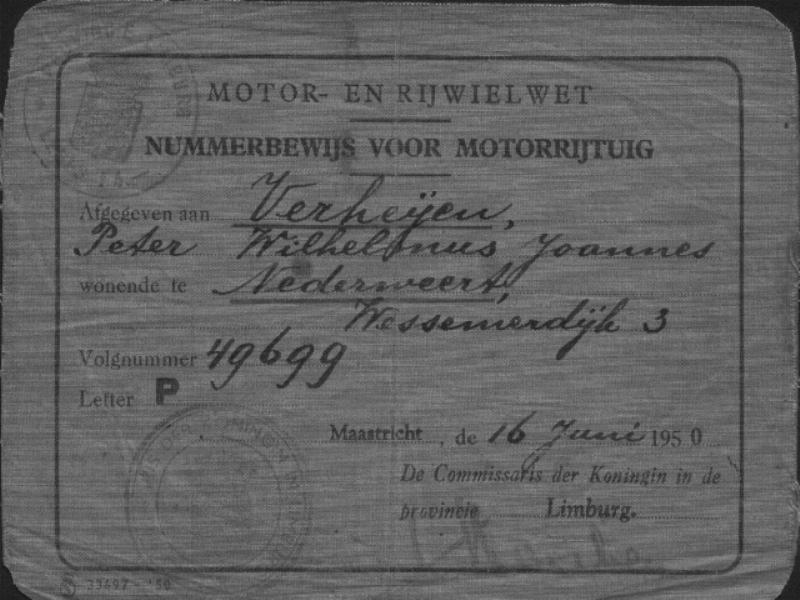 MOTOR- EN RIJWIELWET
NUMMERBEWIJS VOOR MOTORRIJTUIG
Afgegeven aan Verheijen,
Peter Wilhelmus Joannes
wonende te Nederweert,
Wessemerdijk 3
Volgnummer 49699
Letter P
Maastricht, de 16 Juni 1950
De Commissaris der Koningin in de
provincie Limburg.
33697 - '50